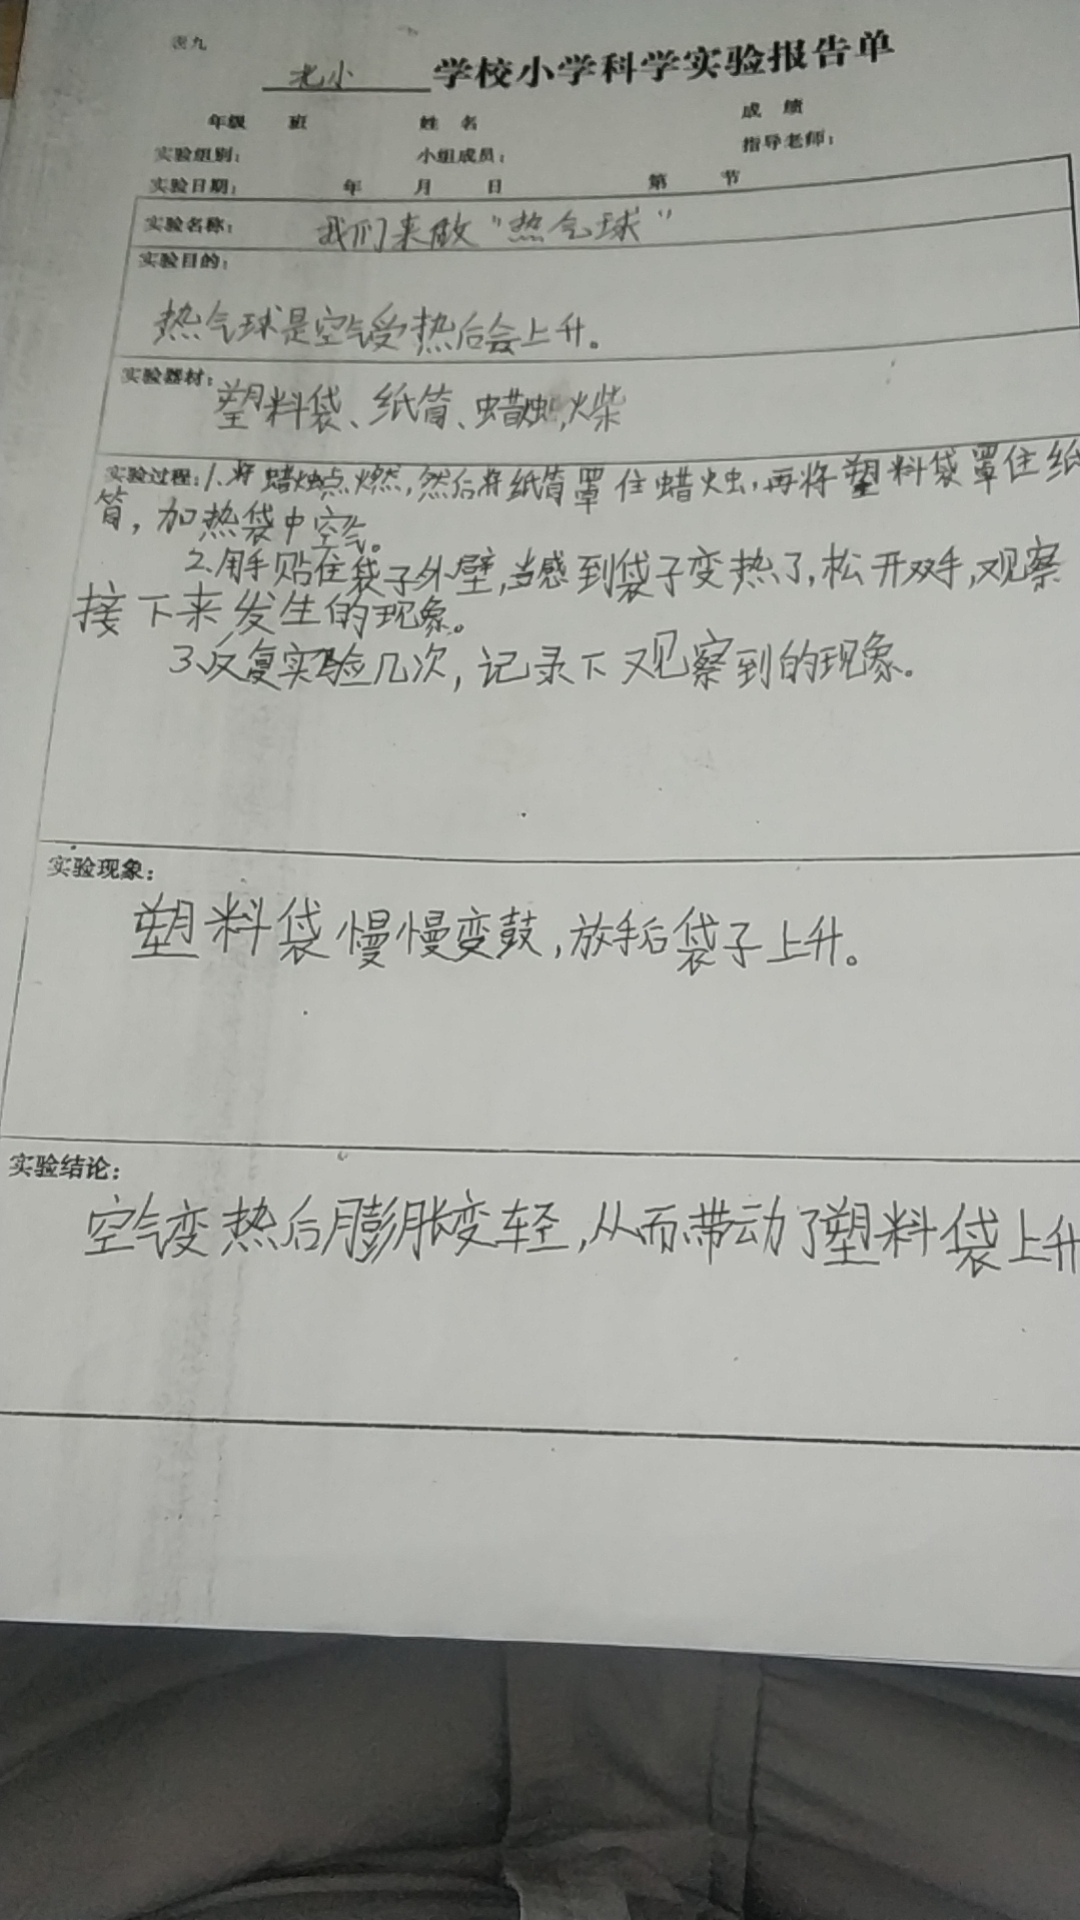 表九
北小 学校小学科学实验报告单
年级 班 姓名 成绩
实验组别： 小组成员： 指导老师：
实验日期： 年 月 日 第 节
实验名称： 我们来做“热气球”
实验目的：
热气球是空气受热后会上升。
实验器材： 塑料袋、纸筒、蜡烛,火柴
实验过程：1.将蜡烛点燃,然后将纸筒罩住蜡烛,再将塑料袋罩住纸
筒，加热袋中空气。
2.用手贴在袋子外壁,当感到袋子变热了,松开双手,观察
接下来发生的现象。
3.反复实验几次，记录下观察到的现象。
实验现象：
塑料袋慢慢变鼓,放手后袋子上升。
实验结论：
空气变热后膨胀变轻,从而带动了塑料袋上升